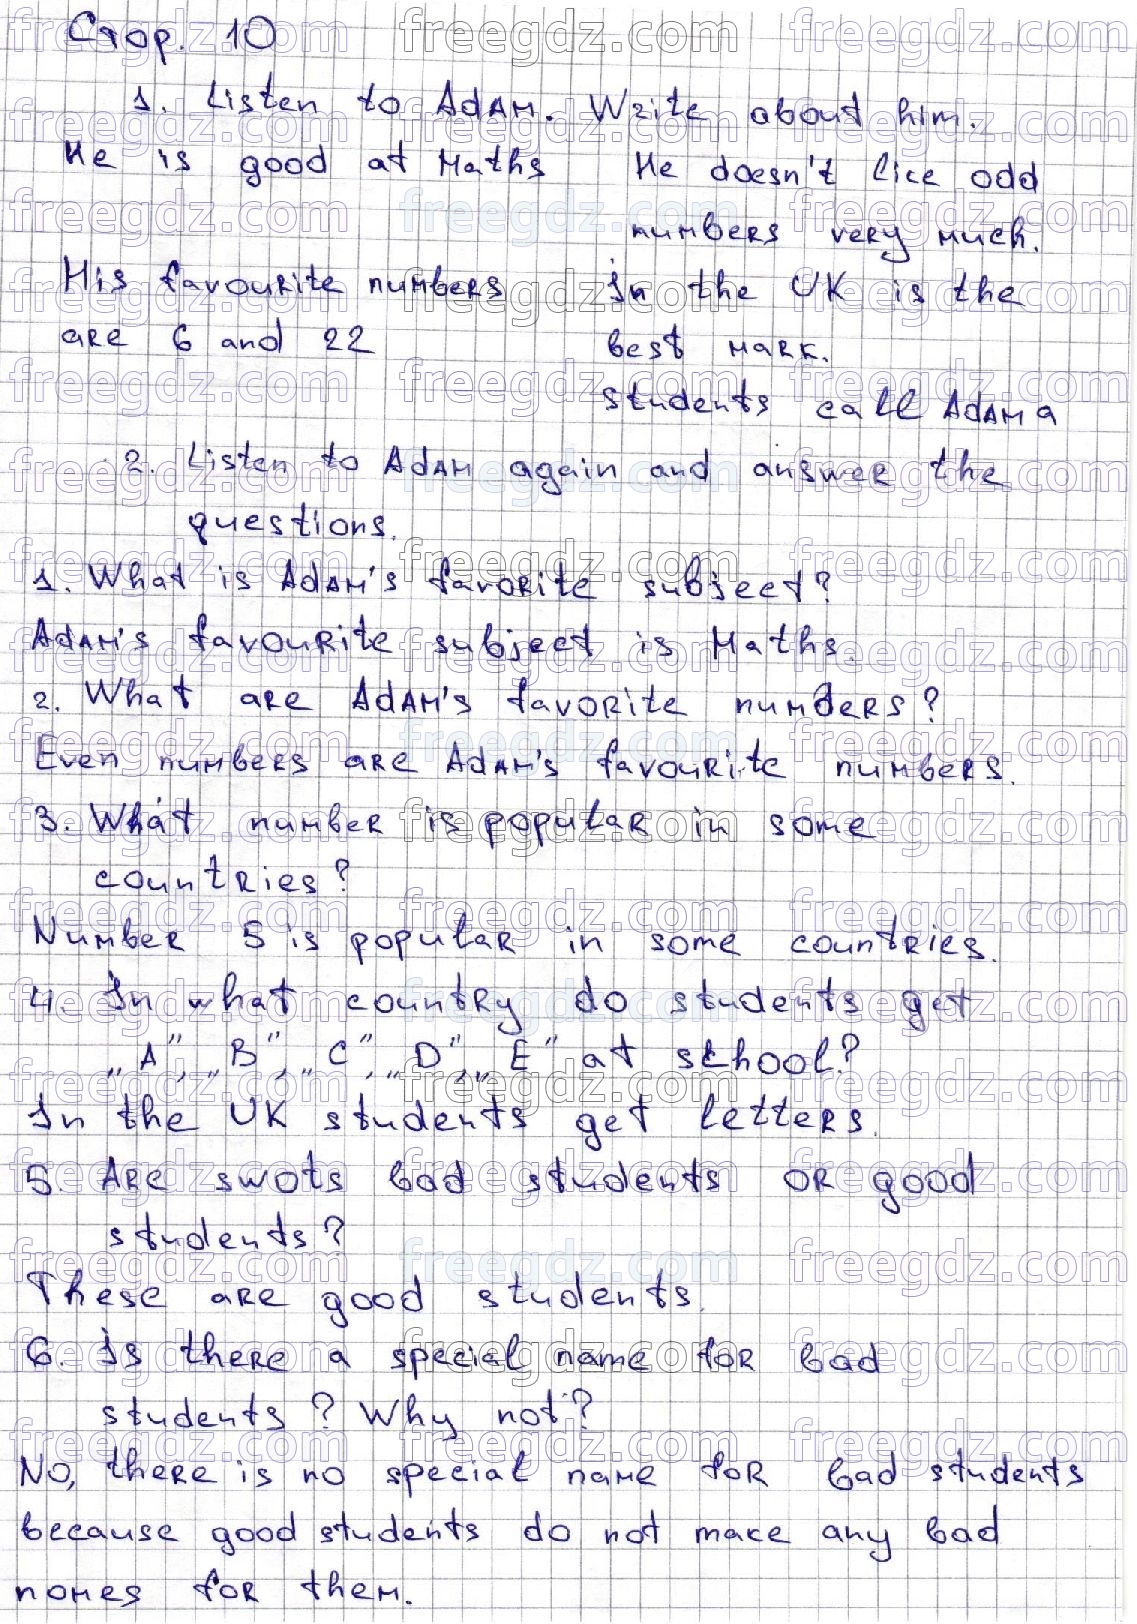 Стор. 10
1. Listen to Adam. Write about him.
He is good at Maths He doesn't lice odd
numbers very much.
His favourite numbers In the UK is the
are 6 and 22 best mark.
Students call Adam a
2. Listen to Adam again and answer the
questions.
1. What is Adam's favorite subject?
Adam's favourite subject is Maths.
2. What are Adam's favorite numders?
Even numbers are Adam's favourite numbers.
3. What number is popular in some
countries?
Number 5 is popular in some countries.
4. In what country do students get
„A", „B", „C", „D", „E" at school?
In the UK students get letters.
5. Are swots bad students or good
students?
These are good students.
6. Is there a special name for bad
students? Why not?
No, there is no special name for bad students
because good students do not mace any bad
nomes for them.
freegdz.com